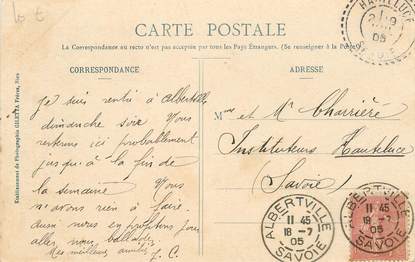 10 €
CARTE POSTALE
La Correspondance au recto n'est pas acceptée par tous les Pays Étrangers. (Se renseigner à la Poste)
CORRESPONDANCE
ADRESSE
HAUTELUCE
05
SAVOIE
Je suis rentré à Albertville
dimanche soir. Nous
resterons ici probablement
jusqu'à la fin de
la semaine. Nous
n'avons rien à faire
aussi nous en profitons pour
aller nous ballader.
Mes meilleurs amitiés
J. C.
M et Mr Charrière
Instituteurs Hauteluce
(Savoie)
ALBERTVILLE
11 45
18 -7
05
SAVOIE
ALBERTVILLE
11 45
18 -7
05
SAVOIE
Etablissements de Photographie GILETTA Frères, Nice